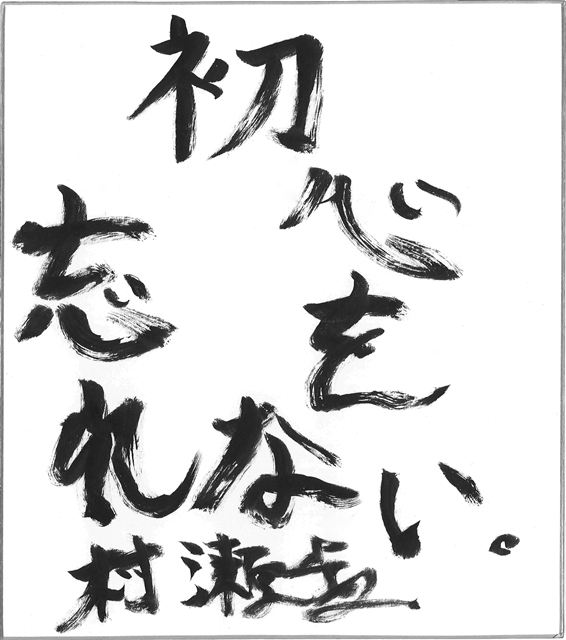 初心を
忘れない。
村瀬